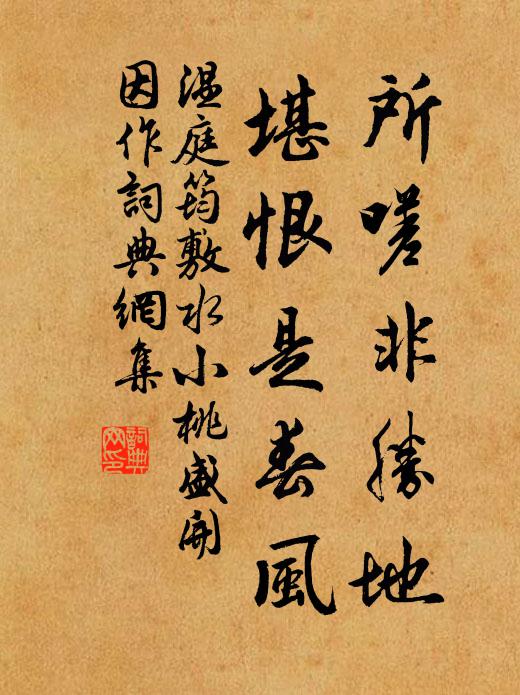 所嗟非勝地
堪恨是春風
溫庭筠敷水小桃盛開
因作詞典網集
詞典網印